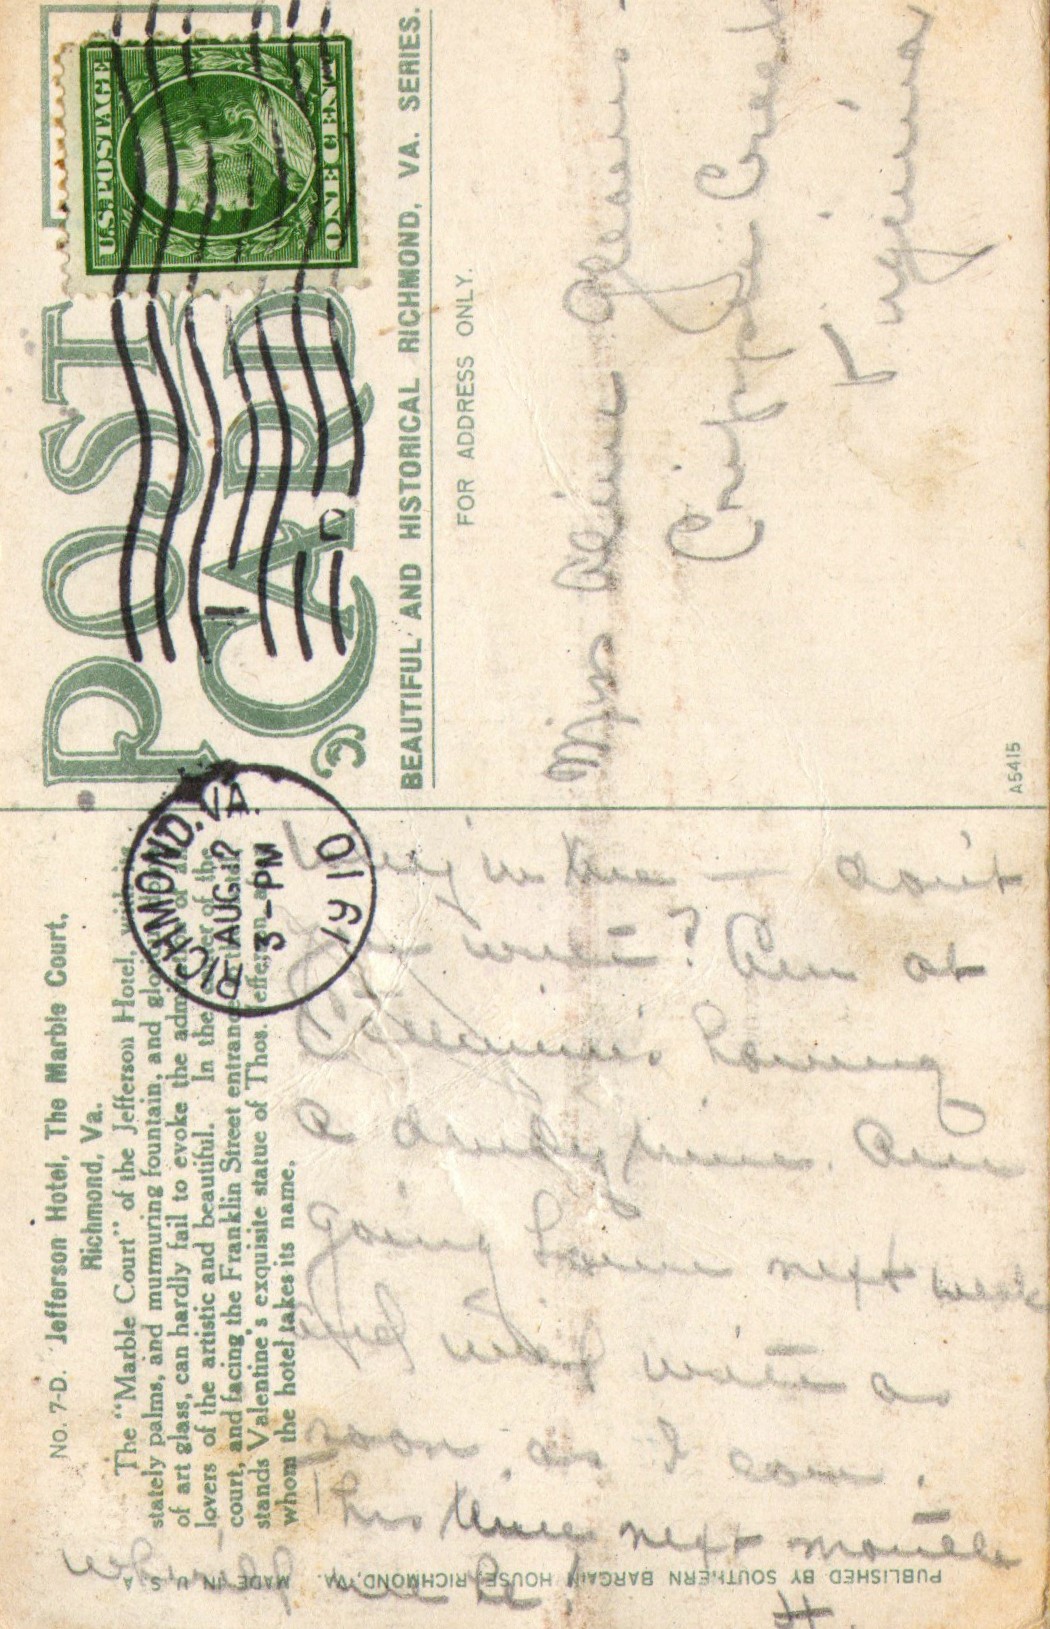 U.S. POSTAGE
ONE CENT
POST
CARD
BEAUTIFUL AND HISTORICAL RICHMOND, VA. SERIES.
FOR ADDRESS ONLY.
Miss
Cripple Creek
Virginia
A5415
RICHMOND, VA.
AUG 12
3-PM
1910
No. 7-D. Jefferson Hotel, The Marble Court,
Richmond, Va.
The "Marble Court" of the Jefferson Hotel, with its
stately palms, and murmuring fountain, and
of art glass, can hardly fail to evoke the of all
lovers of the artistic and beautiful. In the center of the
court, and facing the Franklin Street entrance
stands Valentine's exquisite statue of Thos. Jefferson, after
whom the hotel takes its name.
in the — don't
you write? Am at
having
a dandy time. Am
going home next week
and will write as
soon as I can.
This time next month
where will we be?
H.
PUBLISHED BY SOUTHERN BARGAIN HOUSE, RICHMOND, VA. MADE IN U S A